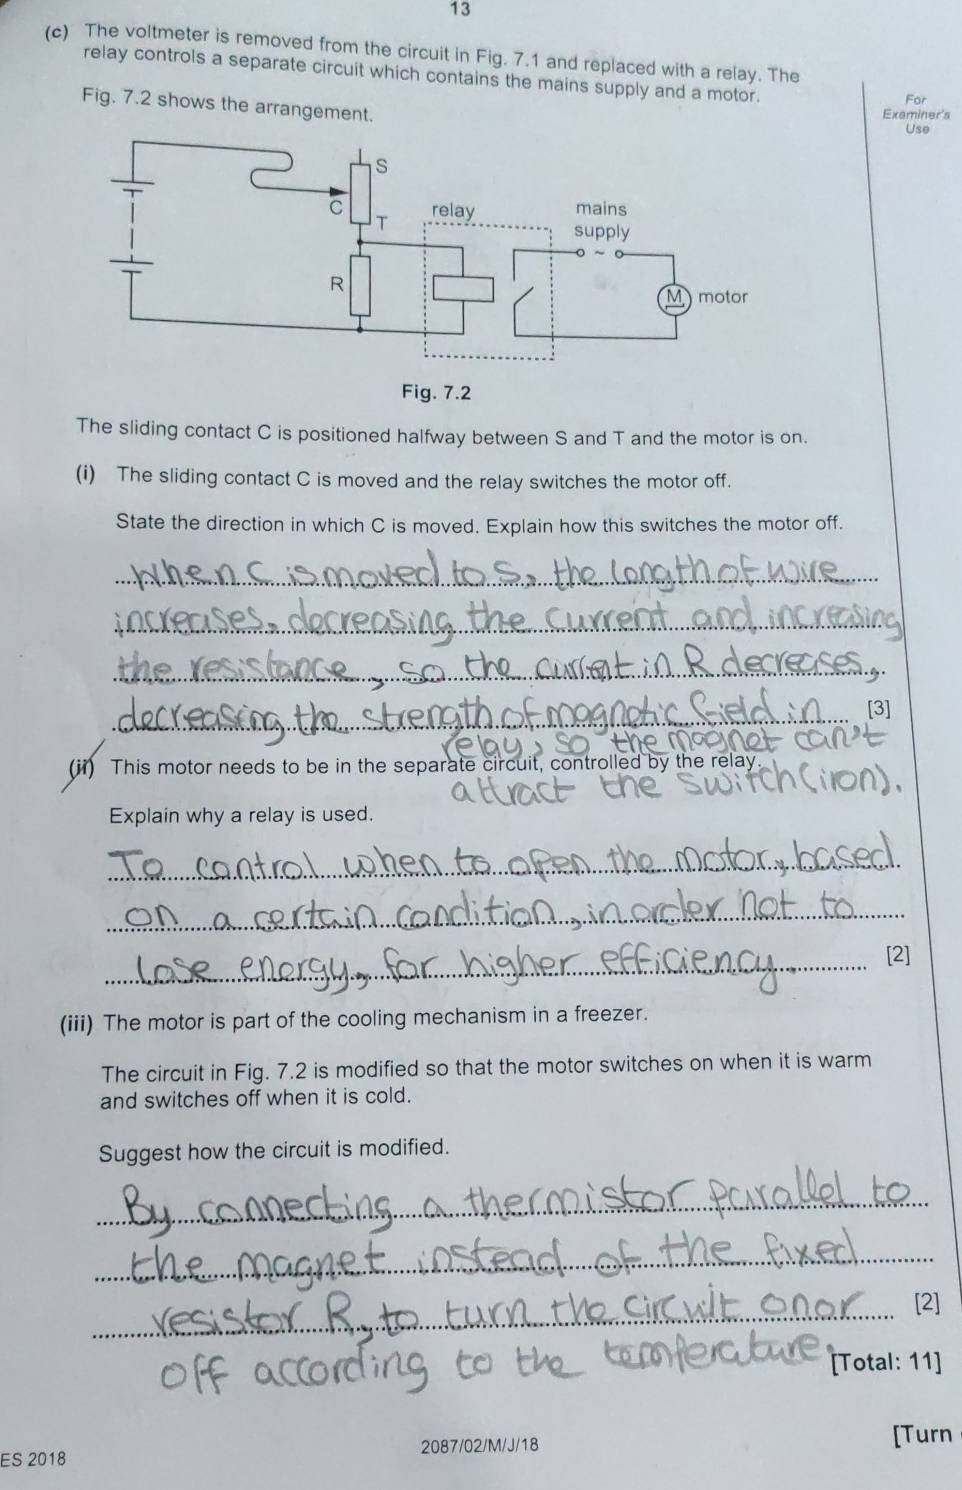 13
(c) The voltmeter is removed from the circuit in Fig. 7.1 and replaced with a relay. The
relay controls a separate circuit which contains the mains supply and a motor.
Fig. 7.2 shows the arrangement.
For
Examiner's
Use
S
C
T
relay
mains
supply
~
R
M
motor
Fig. 7.2
The sliding contact C is positioned halfway between S and T and the motor is on.
(i) The sliding contact C is moved and the relay switches the motor off.
State the direction in which C is moved. Explain how this switches the motor off.
When C is moved to S, the length of wire
increases, decreasing the current and increasing
the resistance, so the current in R decreases,
decreasing the strength of magnetic field in [3]
relay, so the magnet can't
(ii) This motor needs to be in the separate circuit, controlled by the relay.
attract the switch (iron).
Explain why a relay is used.
To control when to open the motor, based
on a certain condition, in order not to
lose energy, for higher efficiency. [2]
(iii) The motor is part of the cooling mechanism in a freezer.
The circuit in Fig. 7.2 is modified so that the motor switches on when it is warm
and switches off when it is cold.
Suggest how the circuit is modified.
By connecting a thermistor parallel to
the magnet instead of the fixed
resistor R, to turn the circuit on or [2]
off according to the temperature.
[Total: 11]
ES 2018
2087/02/M/J/18
[Turn